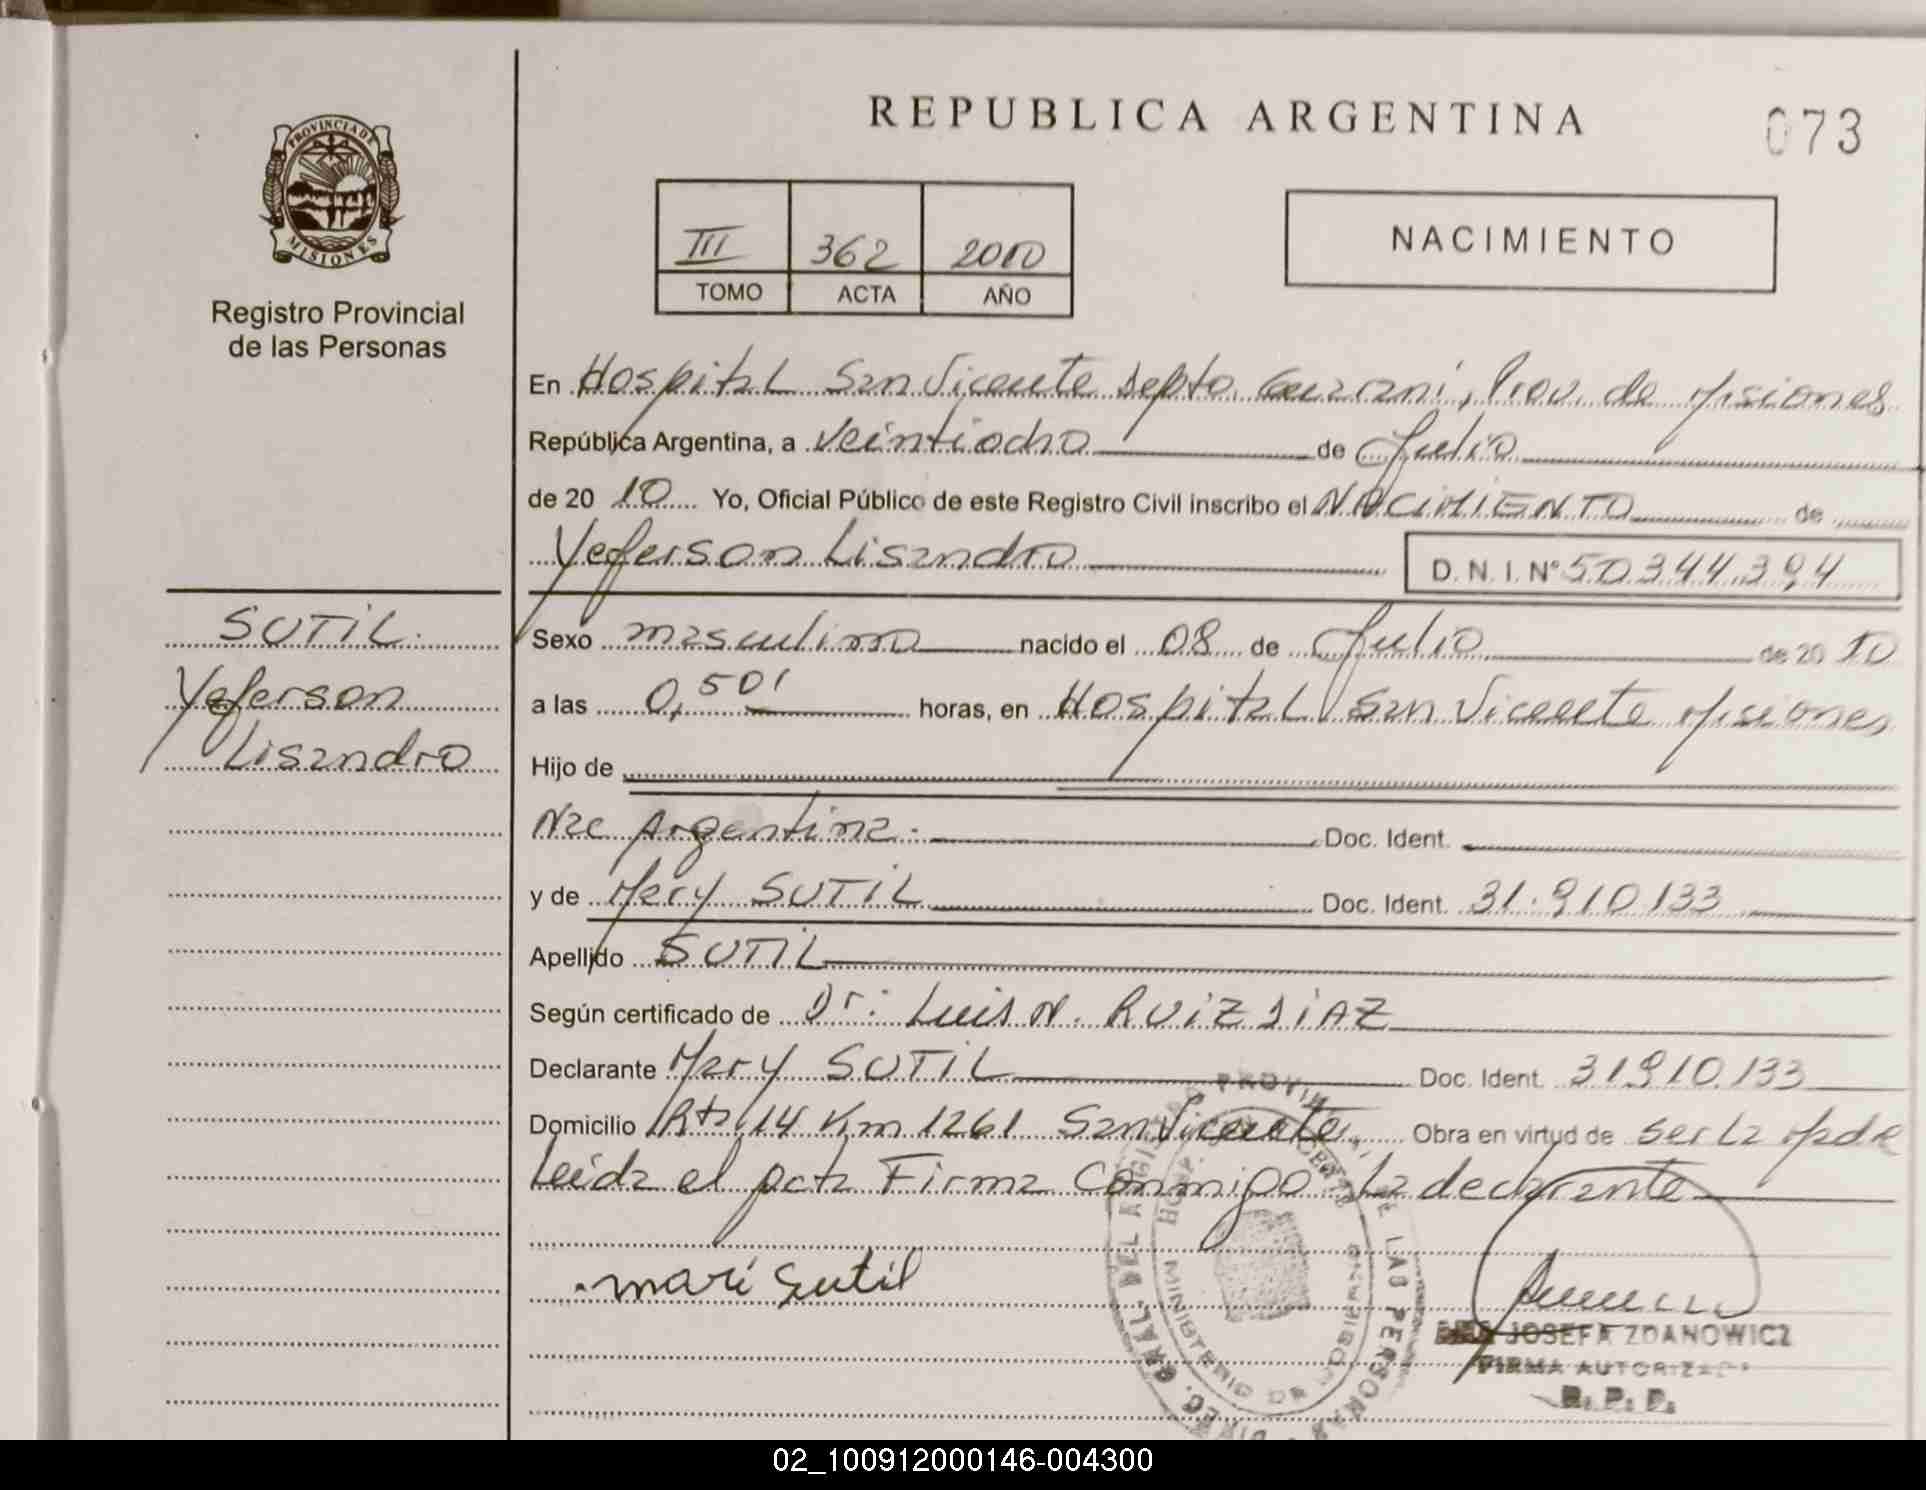 REPUBLICA ARGENTINA
073
PROVINCIA DE
MISIONES
Registro Provincial
de las Personas
III 362 2010
TOMO ACTA AÑO
NACIMIENTO
En Hospital San Vicente Depto. Guarani, Prov. de Misiones
República Argentina, a veintiocho de Julio
de 20 10 Yo, Oficial Público de este Registro Civil inscribo el NACIMIENTO de
Yeferson Lisandro D. N. I. Nº 50344394
SUTIL.
Yeferson
Lisandro
Sexo masculino nacido el 08 de Julio de 20 10
a las 0,50' horas, en Hospital San Vicente Misiones
Hijo de
Nac Argentina. Doc. Ident.
y de Mery SUTIL Doc. Ident. 31.910.133
Apellido SUTIL
Según certificado de Dr: Luis N. RUIZ DIAZ
Declarante Mary SUTIL Doc. Ident. 31910.133
Domicilio Rta 14 Km 1261 San Vicente, Obra en virtud de ser La Madre
Leida el acta Firma Conmigo La declarante
mari Sutil
JOSEFA ZDANOWICZ
FIRMA AUTORIZADA
R. P. P.
DIREC. GRAL. DEL REGISTRO PROVINCIAL DE LAS PERSONAS
MINISTERIO DE GOBIERNO
02_100912000146-004300